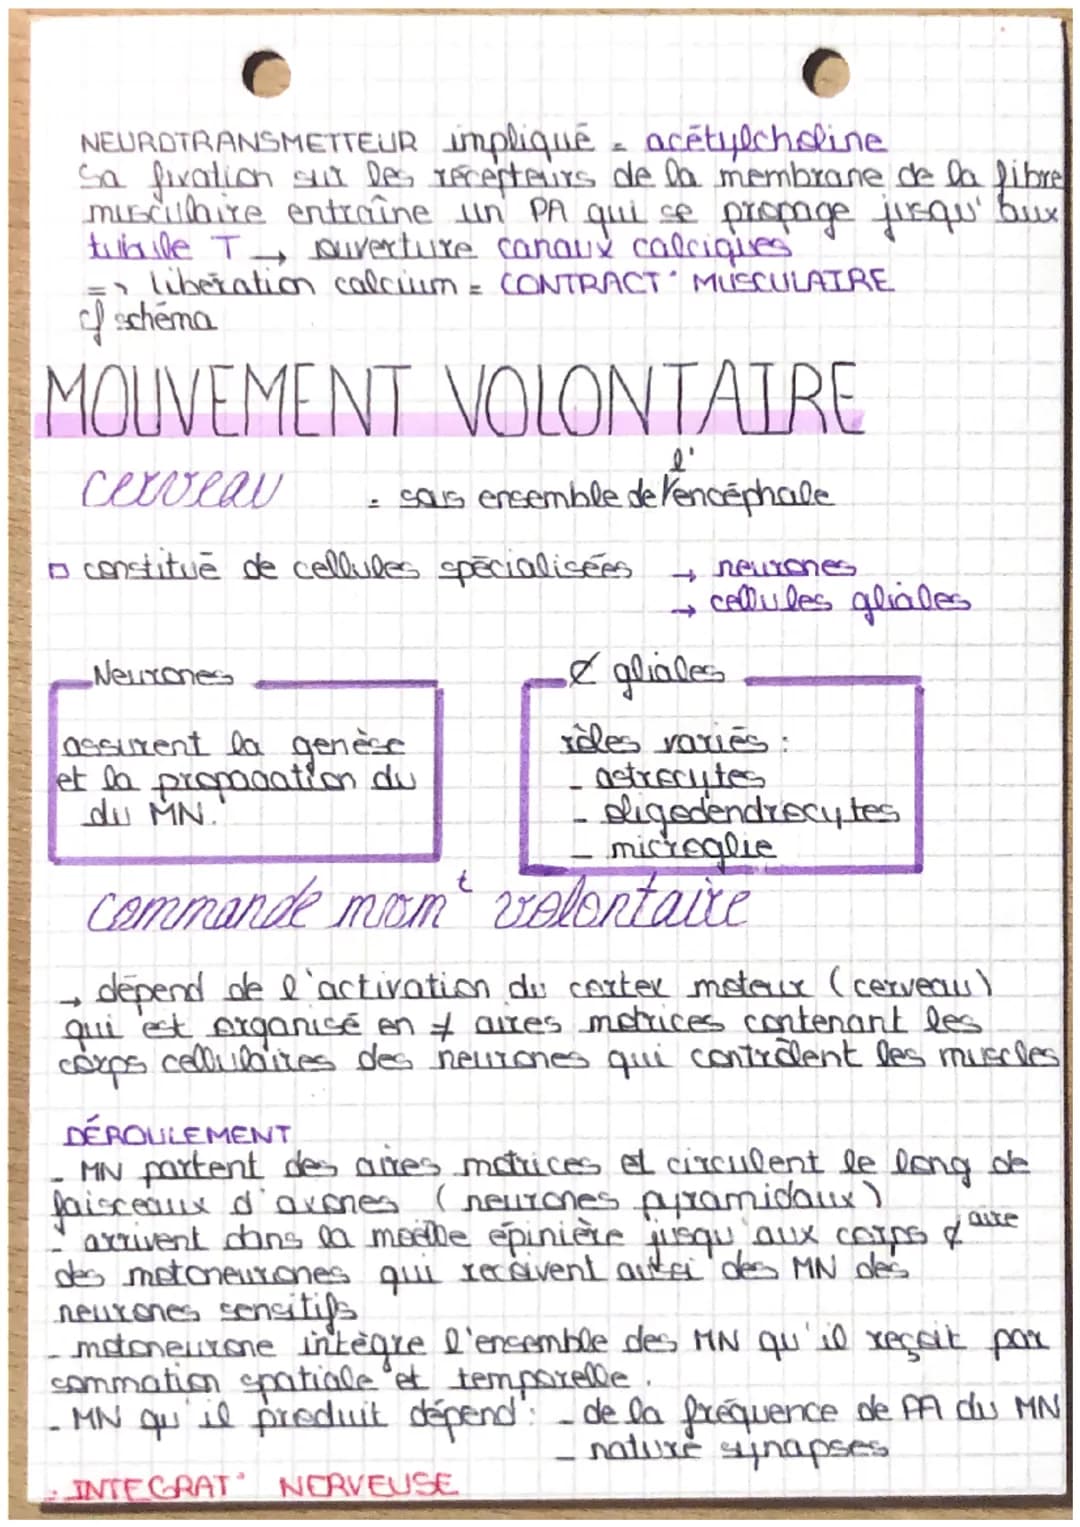 NEUROTRANSMETTEUR impliqué = acétylcholine
Sa fixation sur les récepteurs de la membrane de la fibre
musculaire entraîne un PA qui se propage jusqu'aux
tubule T → ouverture canaux calciques
=> libération calcium = CONTRACT° MUSCULAIRE
cf schéma
MOUVEMENT VOLONTAIRE
cerveau = sous ensemble de l'encéphale
□ constitué de cellules spécialisées → neurones
→ cellules gliales
Neurones
assurent la genèse
et la propagation du
du MN.
₵ gliales
rôles variés :
- astrocytes
- oligodendrocytes
- microglie
commande mvmt volontaire
→ dépend de l'activation du cortex moteur (cerveau)
qui est organisé en ≠ aires motrices contenant les
corps cellulaires des neurones qui contrôlent les muscles
DÉROULEMENT
- MN partent des aires motrices et circulent le long de
faisceaux d'axones (neurones pyramidaux)
- arrivent dans la moelle épinière jusqu'aux corps ₵aire
des motoneurones qui reçoivent aussi des MN des
neurones sensitifs
- motoneurone intègre l'ensemble des MN qu'il reçoit par
sommation spatiale et temporelle.
- MN qu'il produit dépend : - de la fréquence de PA du MN
- nature synapses
: INTEGRAT° NERVEUSE